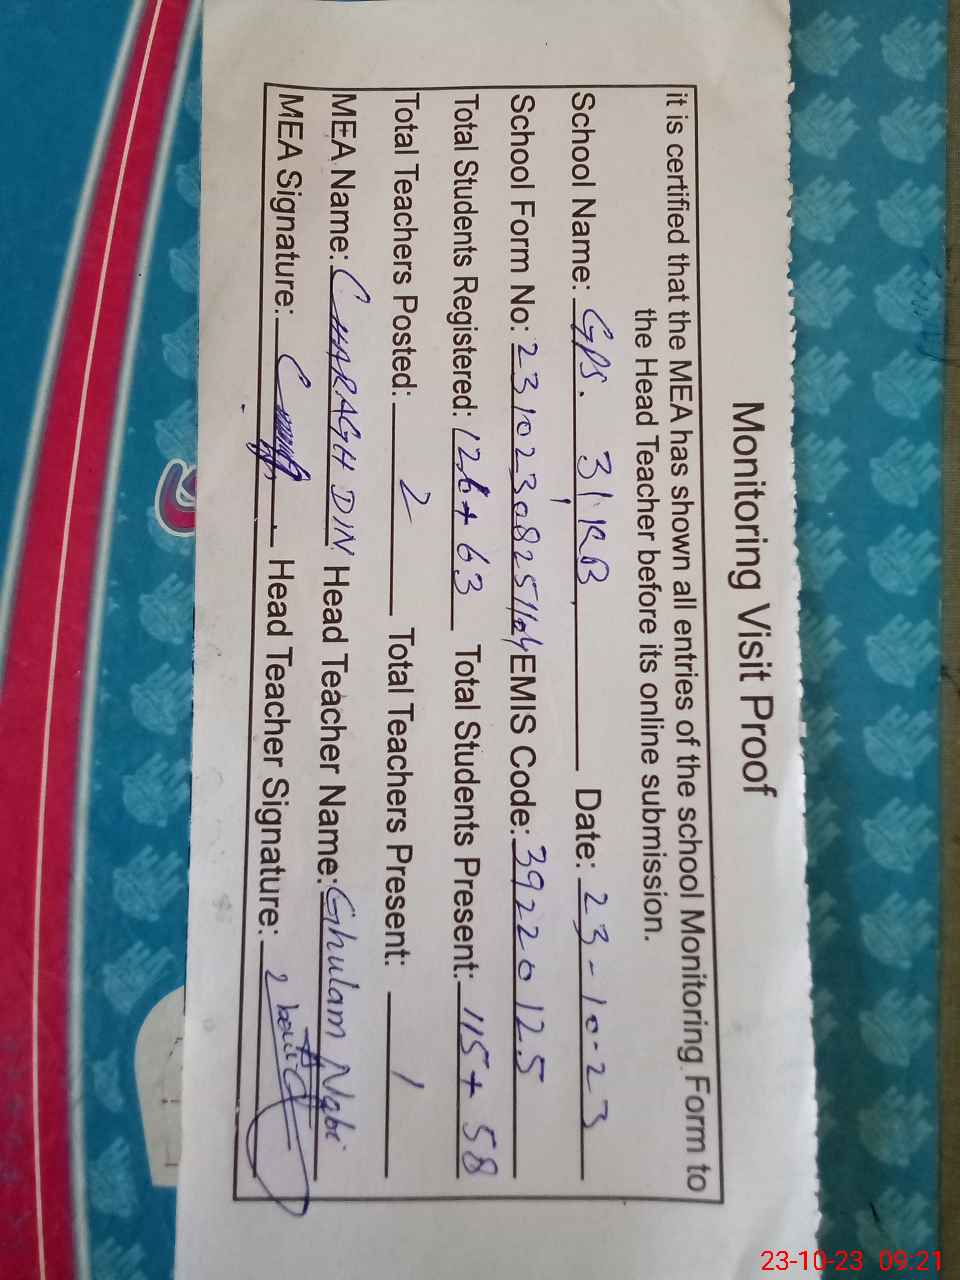 Monitoring Visit Proof
it is certified that the MEA has shown all entries of the school Monitoring Form to
the Head Teacher before its online submission.
School Name: GPS. 31 RB Date: 23-10-23
School Form No: 231023082511104 EMIS Code: 39220125
Total Students Registered: 126+63 Total Students Present: 115+58
Total Teachers Posted: 2 Total Teachers Present: 1
MEA Name: CHARAGH DIN Head Teacher Name: Ghulam Nabi
MEA Signature: Head Teacher Signature:
23-10-23 09:21